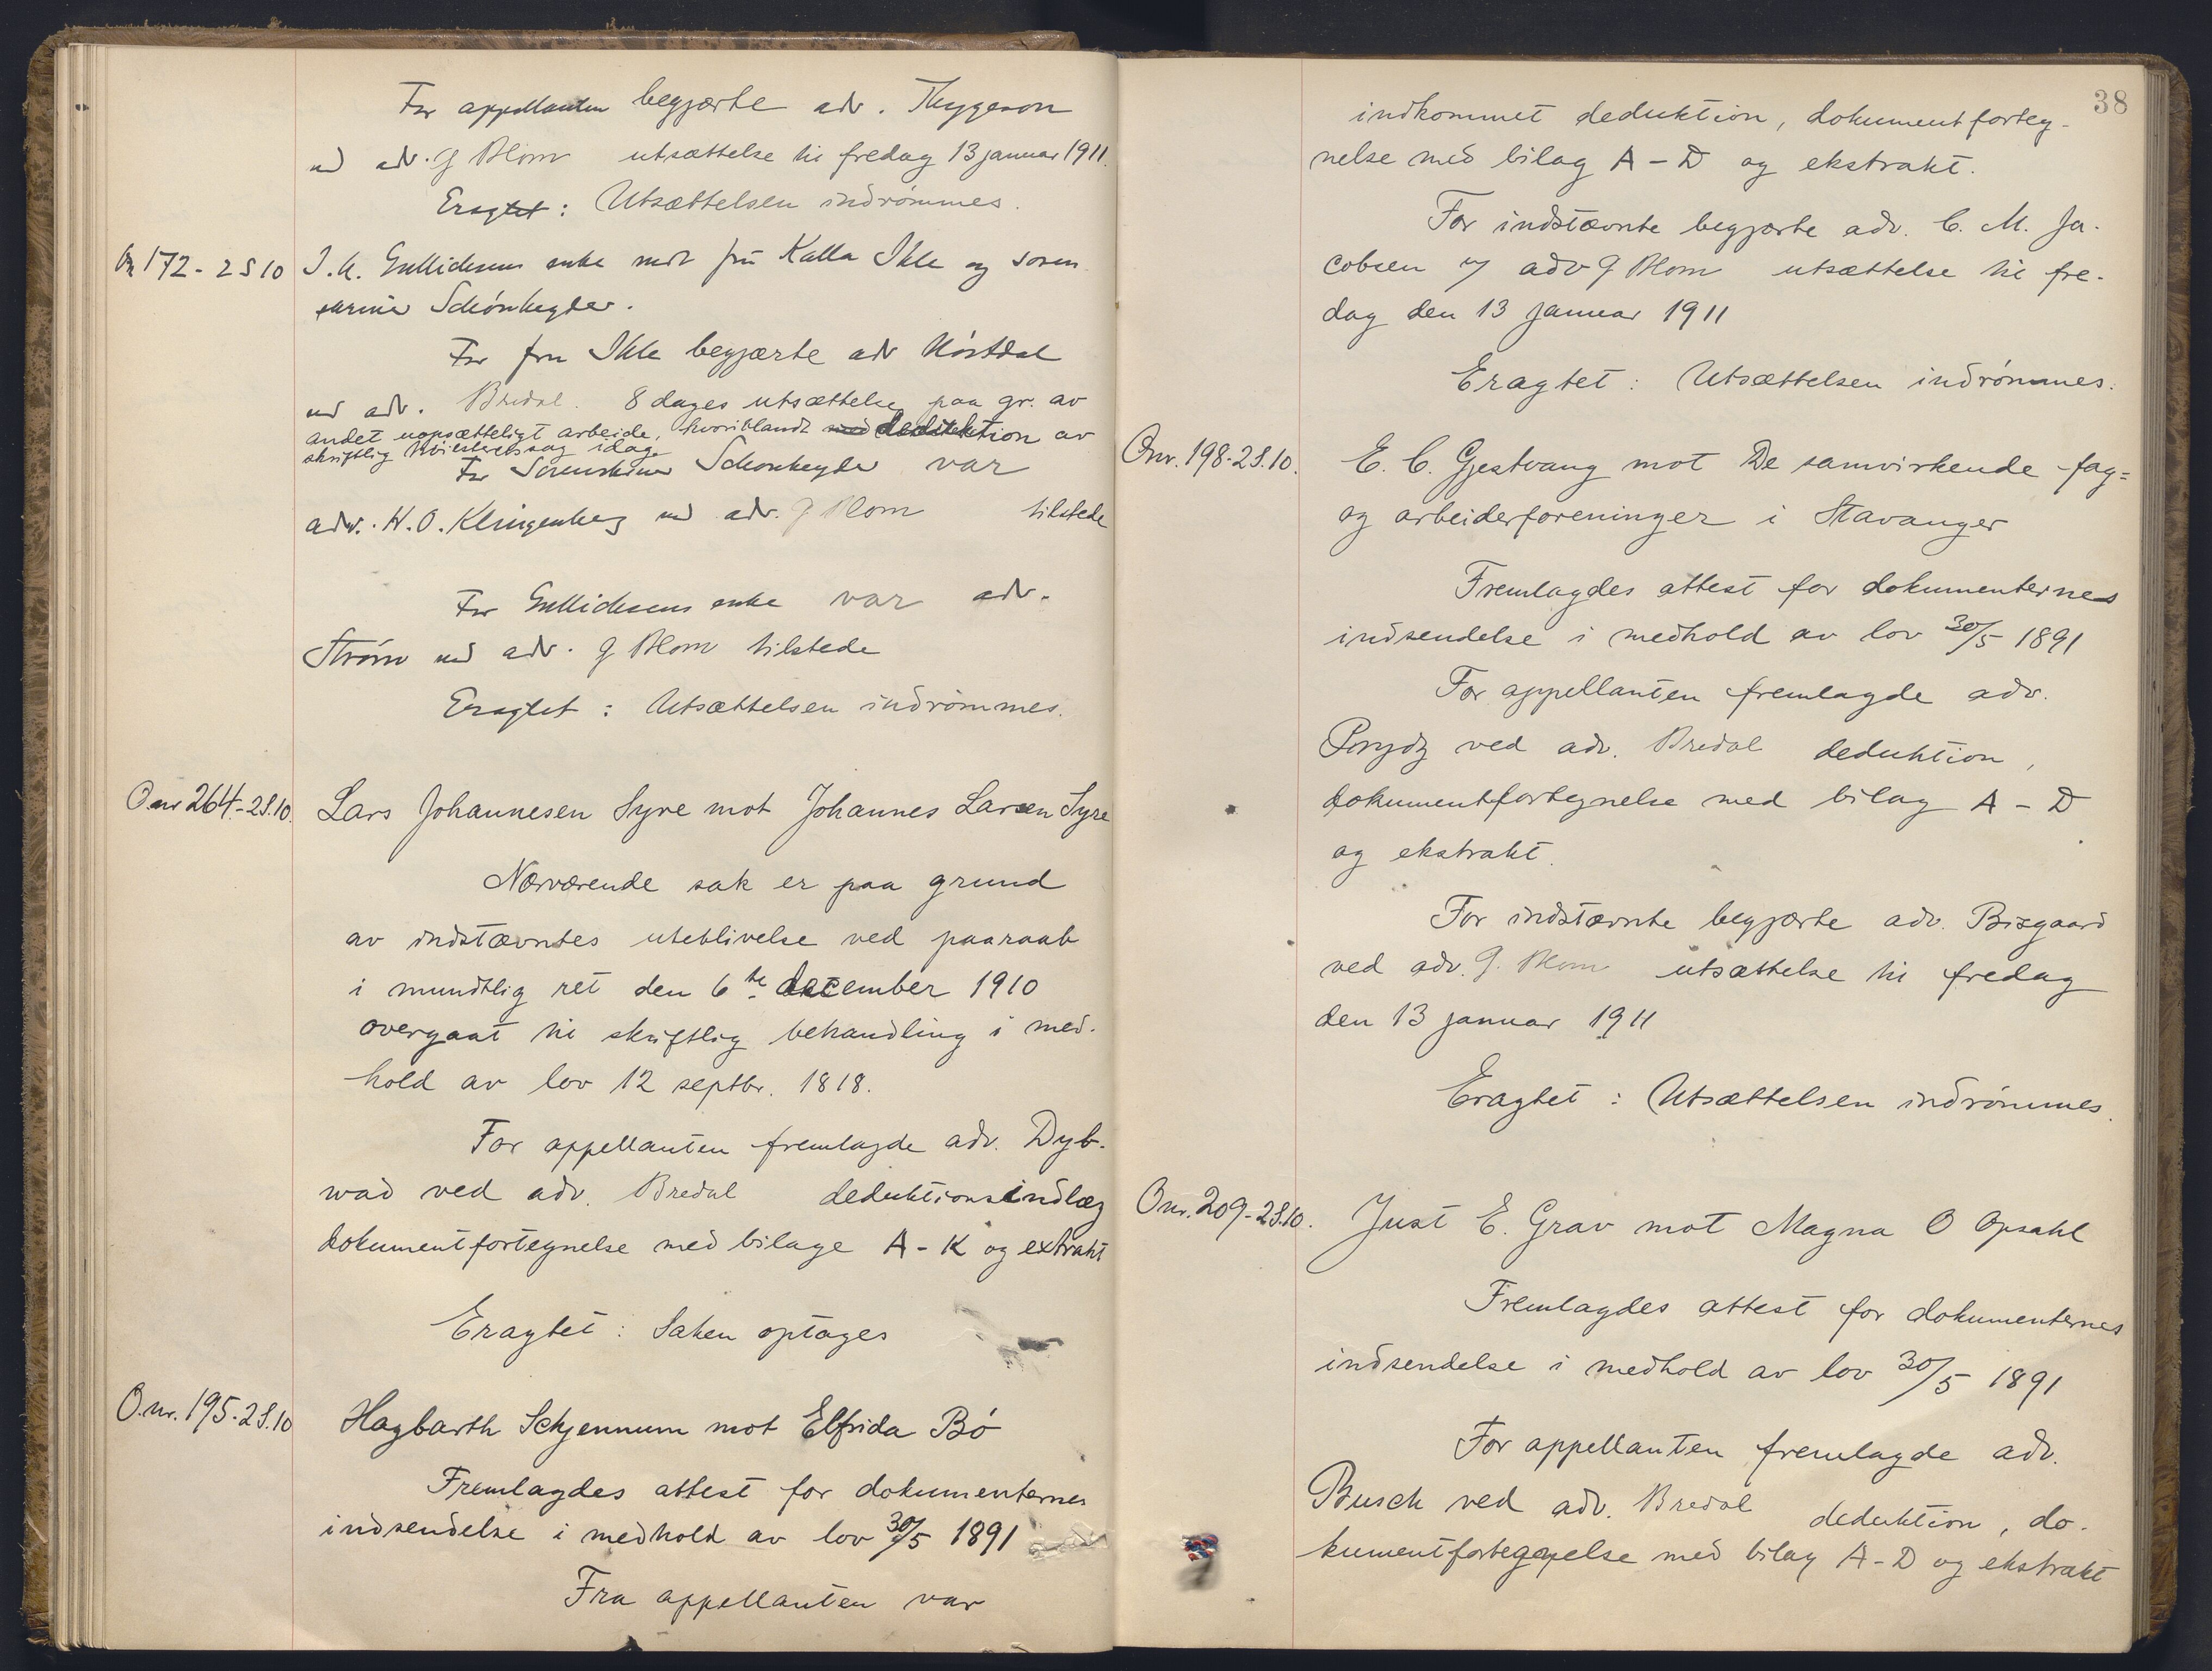 For appellanten begjærte adv. Thygeson
ved adv. G Blom utsættelse til fredag 13 januar 1911.
Eragtet: Utsættelsen indrømmes.
Onr 172 - 2 S 10 J. A. Gullichsens enke mot fru Kalla Ihle og Soren
Schønheyder.
For fru Ihle begjærte adv
ved adv. Bredal. 8 dages utsættelse paa gr. av
andet uopsætteligt arbeide, hvoriblandt deduktion av
skriftlig høiesteretssag idag.
For Schønheyder var
adv. H. O. Klingenberg ved adv. G Blom tilstede
For Gullichsens enke var adv.
Strøm ved adv. G Blom tilstede
Eragtet: Utsættelsen indrømmes.
Onr 264 - 2S.10. Lars Johannesen Syre mot Johannes Larsen Syre
Nærværende sak er paa grund
av indstævntes uteblivelse ved paaraab
i mundtlig ret den 6te december 1910
overgaat til skriftlig behandling i med-
hold av lov 12 septbr. 1818.
For appellanten fremlagde adv. Dyb-
wad ved adv. Bredal deduktionsindlæg
dokumentfortegnelse med bilage A - K og extrakt
Eragtet: Saken optages
O.nr. 195 - 2S.10 Hagbarth Schjennum mot Elfrida Bø
Fremlagdes attest for dokumenternes
indsendelse i medhold av lov 30/5 1891
Fra appellanten var
38
indkommet deduktion, dokumentforteg-
nelse med bilag A - D og ekstrakt.
For indstævnte begjærte adv. C. M. Ja-
cobsen v/ adv G Blom utsættelse til fre-
dag den 13 januar 1911
Eragtet: Utsættelsen indrømmes.
Onr. 198 - 2S.10. E. C. Gjestvang mot De samvirkende fag=
og arbeiderforeninger i Stavanger
Fremlagdes attest for dokumenternes
indsendelse i medhold av lov 30/5 1891
For appellanten fremlagde adv.
ved adv. Bredal deduktion,
dokumentfortegnelse med bilag A - D
og ekstrakt.
For indstævnte begjærte adv. Bisgaard
ved adv. G. Blom utsættelse til fredag
den 13 januar 1911
Eragtet: Utsættelsen indrømmes.
O nr. 209 - 2S.10. Just E. Grav mot Magna O Opsahl
Fremlagdes attest for dokumenternes
indsendelse i medhold av lov 30/5 1891
For appellanten fremlagde adv.
Busch ved adv. Bredal deduktion, do-
kumentfortegnelse med bilag A - D og ekstrakt